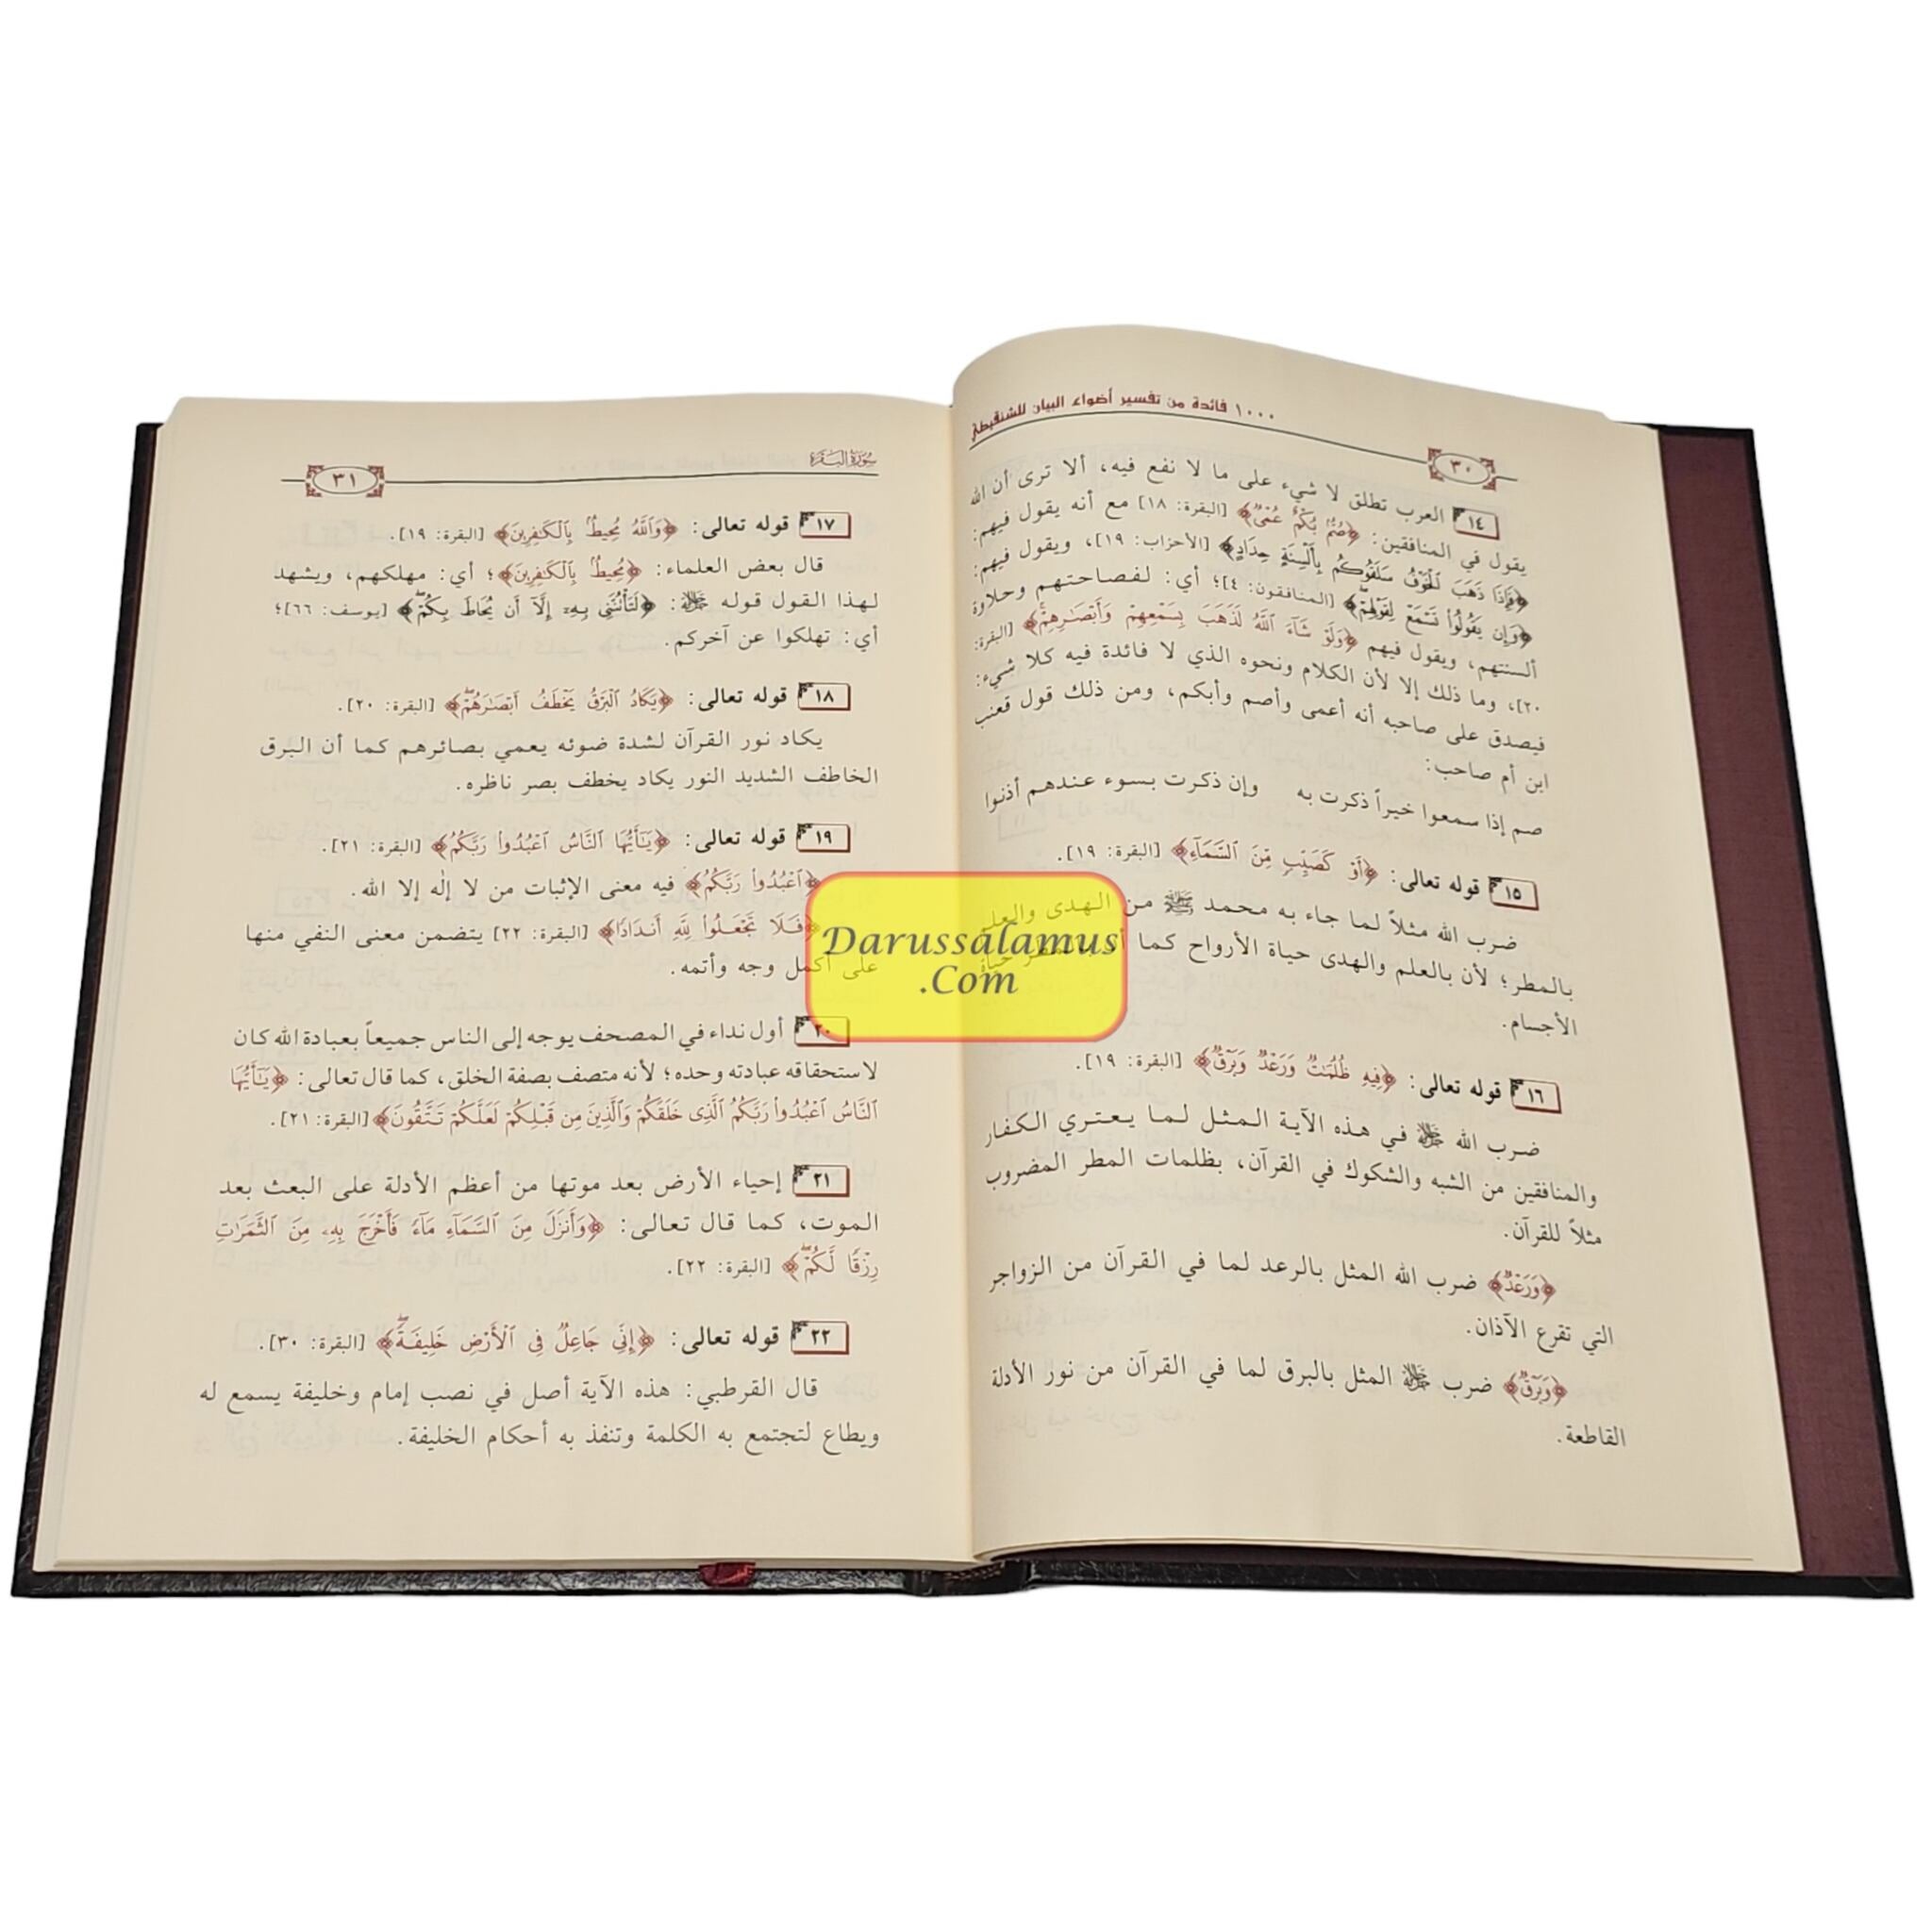 ١٠٠٠ فائدة من تفسير أضواء البيان للشنقيطي
٣٠
١٤ العرب تطلق لا شيء على ما لا نفع فيه، ألا ترى أن الله
يقول في المنافقين: ﴿صُمٌّ بُكْمٌ عُمْىٌ﴾ [البقرة: ١٨] مع أنه يقول فيهم:
﴿فَإِذَا ذَهَبَ ٱلْخَوْفُ سَلَقُوكُم بِأَلْسِنَةٍ حِدَادٍ﴾ [الأحزاب: ١٩]، ويقول فيهم:
﴿وَإِن يَقُولُوا۟ تَسْمَعْ لِقَوْلِهِمْ﴾ [المنافقون: ٤]؛ أي: لفصاحتهم وحلاوة
ألسنتهم، ويقول فيهم ﴿وَلَوْ شَآءَ ٱللَّهُ لَذَهَبَ بِسَمْعِهِمْ وَأَبْصَـٰرِهِمْ﴾ [البقرة:
٢٠]، وما ذلك إلا لأن الكلام ونحوه الذي لا فائدة فيه كلا شيء:
فيصدق على صاحبه أنه أعمى وأصم وأبكم، ومن ذلك قول قعنب
ابن أم صاحب:
صم إذا سمعوا خيراً ذكرت به وإن ذكرت بسوء عندهم أذنوا
١٥ قوله تعالى: ﴿أَوْ كَصَيِّبٍ مِّنَ ٱلسَّمَآءِ﴾ [البقرة: ١٩].
ضرب الله مثلاً لما جاء به محمد ﷺ من الهدى والعلم
بالمطر؛ لأن بالعلم والهدى حياة الأرواح كما أن بالمطر حياة
الأجسام.
١٦ قوله تعالى: ﴿فِيهِ ظُلُمَـٰتٌ وَرَعْدٌ وَبَرْقٌ﴾ [البقرة: ١٩].
ضرب الله ﷻ في هذه الآية المثل لما يعتري الكفار
والمنافقين من الشبه والشكوك في القرآن، بظلمات المطر المضروب
مثلاً للقرآن.
﴿وَرَعْدٌ﴾ ضرب الله المثل بالرعد لما في القرآن من الزواجر
التي تقرع الآذان.
﴿وَبَرْقٌ﴾ ضرب ﷻ المثل بالبرق لما في القرآن من نور الأدلة
القاطعة.
سُورَةُ البَقَرَة
٣١
١٧ قوله تعالى: ﴿وَٱللَّهُ مُحِيطٌۢ بِٱلْكَـٰفِرِينَ﴾ [البقرة: ١٩].
قال بعض العلماء: ﴿مُحِيطٌۢ بِٱلْكَـٰفِرِينَ﴾؛ أي: مهلكهم، ويشهد
لهذا القول قوله ﷻ: ﴿لَتَأْتُنَّنِى بِهِۦٓ إِلَّآ أَن يُحَاطَ بِكُمْ﴾ [يوسف: ٦٦]؛
أي: تهلكوا عن آخركم.
١٨ قوله تعالى: ﴿يَكَادُ ٱلْبَرْقُ يَخْطَفُ أَبْصَـٰرَهُمْ﴾ [البقرة: ٢٠].
يكاد نور القرآن لشدة ضوئه يعمي بصائرهم كما أن البرق
الخاطف الشديد النور يكاد يخطف بصر ناظره.
١٩ قوله تعالى: ﴿يَـٰٓأَيُّهَا ٱلنَّاسُ ٱعْبُدُوا۟ رَبَّكُمُ﴾ [البقرة: ٢١].
﴿ٱعْبُدُوا۟ رَبَّكُمُ﴾ فيه معنى الإثبات من لا إلٰه إلا الله.
﴿فَلَا تَجْعَلُوا۟ لِلَّهِ أَندَادًا﴾ [البقرة: ٢٢] يتضمن معنى النفي منها
على أكمل وجه وأتمه.
٢٠ أول نداء في المصحف يوجه إلى الناس جميعاً بعبادة الله كان
لاستحقاقه عبادته وحده؛ لأنه متصف بصفة الخلق، كما قال تعالى: ﴿يَـٰٓأَيُّهَا
ٱلنَّاسُ ٱعْبُدُوا۟ رَبَّكُمُ ٱلَّذِى خَلَقَكُمْ وَٱلَّذِينَ مِن قَبْلِكُمْ لَعَلَّكُمْ تَتَّقُونَ﴾ [البقرة: ٢١].
٢١ إحياء الأرض بعد موتها من أعظم الأدلة على البعث بعد
الموت، كما قال تعالى: ﴿وَأَنزَلَ مِنَ ٱلسَّمَآءِ مَآءً فَأَخْرَجَ بِهِۦ مِنَ ٱلثَّمَرَٰتِ
رِزْقًا لَّكُمْ﴾ [البقرة: ٢٢].
٢٢ قوله تعالى: ﴿إِنِّى جَاعِلٌ فِى ٱلْأَرْضِ خَلِيفَةً﴾ [البقرة: ٣٠].
قال القرطبي: هذه الآية أصل في نصب إمام وخليفة يسمع له
ويطاع لتجتمع به الكلمة وتنفذ به أحكام الخليفة.
Darussalamus
.Com